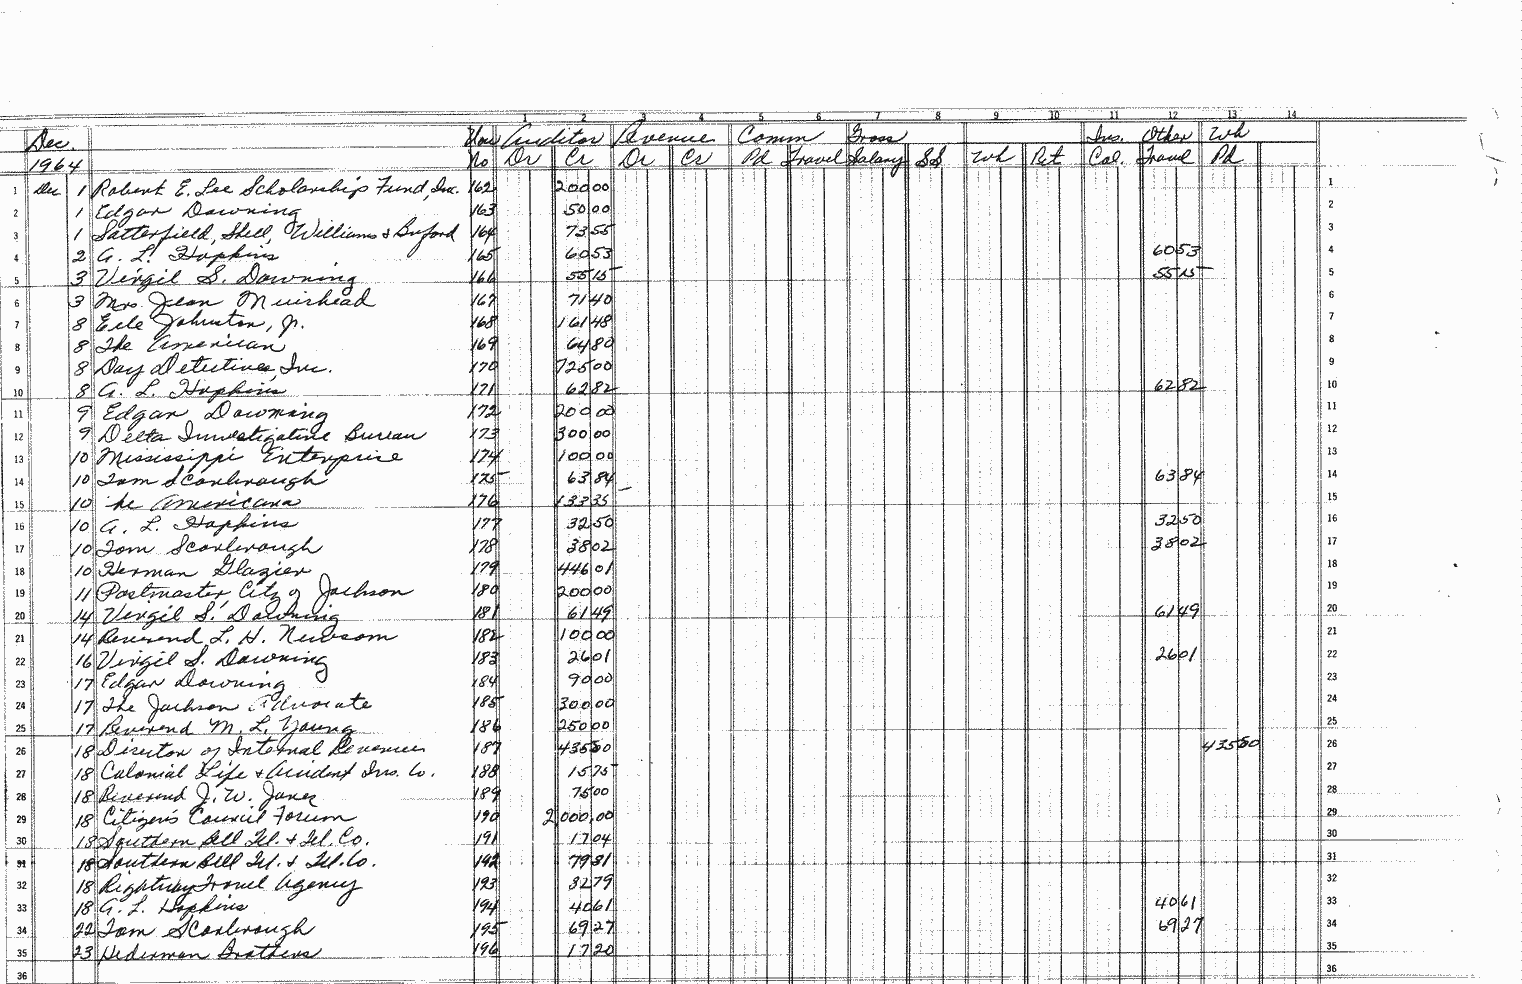 1 2 3 4 5 6 7 8 9 10 11 12 13 14
Dec. Vou Auditor Revenue Comm Gross Ins. Other Wh
1964 No Dr Cr Dr Cr Pd Travel Salary SS Wh Ret Col. Travel Pd
1 Dec 1 Robert E. Lee Scholarship Fund, Inc. 162 20000 1
2 1 Edgar Downing 163 5000 2
3 1 Satterfield, Shell, Williams & Buford 164 7355 3
4 2 A. L. Hopkins 165 6053 6053 4
5 3 Virgil S. Downing 166 5515 5515 5
6 3 Mrs Jean Muirhead 167 7140 6
7 8 Erle Johnston, Jr. 168 16148 7
8 8 The American 169 6480 8
9 8 Day Detectives, Inc. 170 72500 9
10 8 A. L. Hopkins 171 6282 6282 10
11 9 Edgar Downing 172 20000 11
12 9 Delta Investigative Bureau 173 30000 12
13 10 Mississippi Enterprise 174 10000 13
14 10 Tom Scarbrough 175 6384 6384 14
15 10 he Americana 176 13335 15
16 10 A. L. Hopkins 177 3250 3250 16
17 10 Tom Scarbrough 178 3802 3802 17
18 10 Herman Glazier 179 44601 18
19 11 Postmaster, City of Jackson 180 20000 19
20 14 Virgil S. Downing 181 6149 6149 20
21 14 Reverend L. H. Newsom 182 10000 21
22 16 Virgil S. Downing 183 2601 2601 22
23 17 Edgar Downing 184 9000 23
24 17 The Jackson Advocate 185 30000 24
25 17 Reverend M. L. Young 186 25000 25
26 18 Director of Internal Revenue 187 43550 43550 26
27 18 Colonial Life & Accident Ins. Co. 188 1575 27
28 18 Reverend J. W. Jones 189 7500 28
29 18 Citizens Council Forum 190 2,000.00 29
30 18 Southern Bell Tel. & Tel. Co. 191 1704 30
31 18 Southern Bell Tel. & Tel. Co. 192 7981 31
32 18 Rightway Travel Agency 193 3279 32
33 18 A. L. Hopkins 194 4061 4061 33
34 22 Tom Scarbrough 195 6927 6927 34
35 23 Hederman Brothers 196 1720 35
36 36